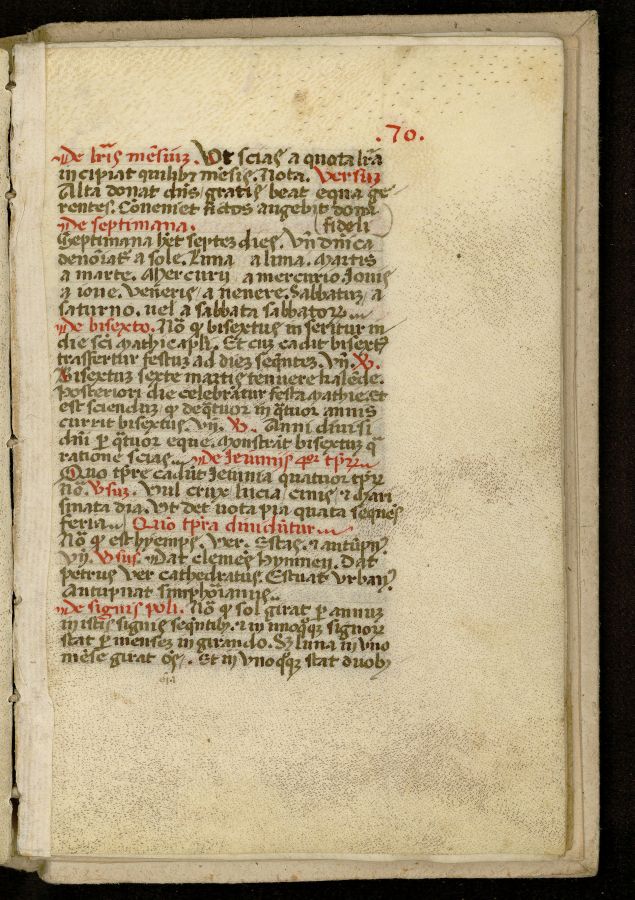 .70.
De lr̃is mẽsiuʒ. Vt scias a quota lr̃a
incipiat quilibʒ mẽsis. Nota. Versuʒ
Alta donat dñs gratis beat equa ge
rentes. Conteniet fictos augebit dona
fideli
De septimana.
Septimana hʒet septeʒ dies. Vñ dñica
denoiat̃ a sole. Luna a luna. Martis
a marte. Mercurij a mercurio. Iouis
a ioue. Veneris, a uenere. Sabbatuʒ, a
saturno. uel a sabbata sabbatoꝝ.
De bisexto. Nõ ꝙ bisextus inseritur in
die sci mathie apl̃i. Et cuʒ cadit bisext9
trasfertur festuʒ ad dieʒ seqñteʒ. Vñ. V̷.
Bisextuʒ sexte martis tenuere kalẽde.
Posteriori die celebratur festa mathie. Et
est sciendum ꝙ de q̃tuor in q̃tuor annis
currit bisextus. Vñ. V̷. Anni diuisi
dñi ꝑ q̃tuor eque. Monstrãt bisextuʒ q̃
ratione scias. De Ieiunijs 4or tp̃rꝝ
Quo tp̃re cadũt Ieiunia quatuor tp̃rꝝ
nõ. Vsuʒ. Vul crux lucia, cinis, ⁊ chari
smata dia. Vt det uota pia quata sequẽs
feria. Quõ tp̃ra diuidũtur
Nõ ꝙ est hyemps. Ver. Estas. ⁊ autũpn9
Vñ. Vsus. Dat clemẽs hyemen. Dat
petrus Ver cathedratus. Estuat Vrban9
Autupnat simphorianus.
De signis poli. Nõ ꝙ sol girat ꝑ annuʒ
in istis signis seqñtibʒ. ⁊ in unoq̃qʒ signoꝝ
stat ꝑ menseʒ in girando. Sʒ luna in uno
mẽse girat oẽs. Et in Vnoq̃qʒ stat duobʒ